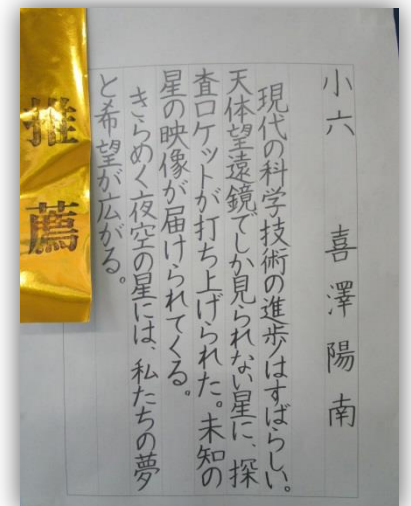 小六　喜澤陽南
現代の科学技術の進歩はすばらしい。
天体望遠鏡でしか見られない星に、探
査ロケットが打ち上げられた。未知の
星の映像が届けられてくる。
きらめく夜空の星には、私たちの夢
と希望が広がる。
推薦